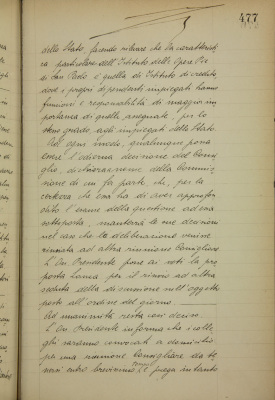 477
dello Stato, facendo rilevare che la caratteristi
ca particolare dell'Istituto delle Opere Pie
di San Paolo è quella di Istituto di credito,
dove i propri dipendenti impiegati hanno
funzioni e responsabilità di maggior im
portanza di quelle assegnate, per lo
stesso grado, agli impiegati dello Stato.
Ad ogni modo, qualunque possa
essere l'odierna decisione del Consi
glio, dichiara a nome della Commis
sione di cui fa parte che, per la
certezza che essa ha di aver approfon
dito l'esame della questione ad essa
sottoposta, manterrà le sue decisioni
nel caso che la deliberazione venisse
rinviata ad altra riunione consigliare.
L'On. Presidente pone ai voti la pro
posta per il rinvio ad altra
seduta della discussione sull'oggetto
posto all'ordine del giorno
Ad unanimità resta così deciso.
L'On. Presidente informa che i colle
ghi saranno convocati a domicilio
per una riunione consigliare da te
nersi entro brevissimo e prega intanto